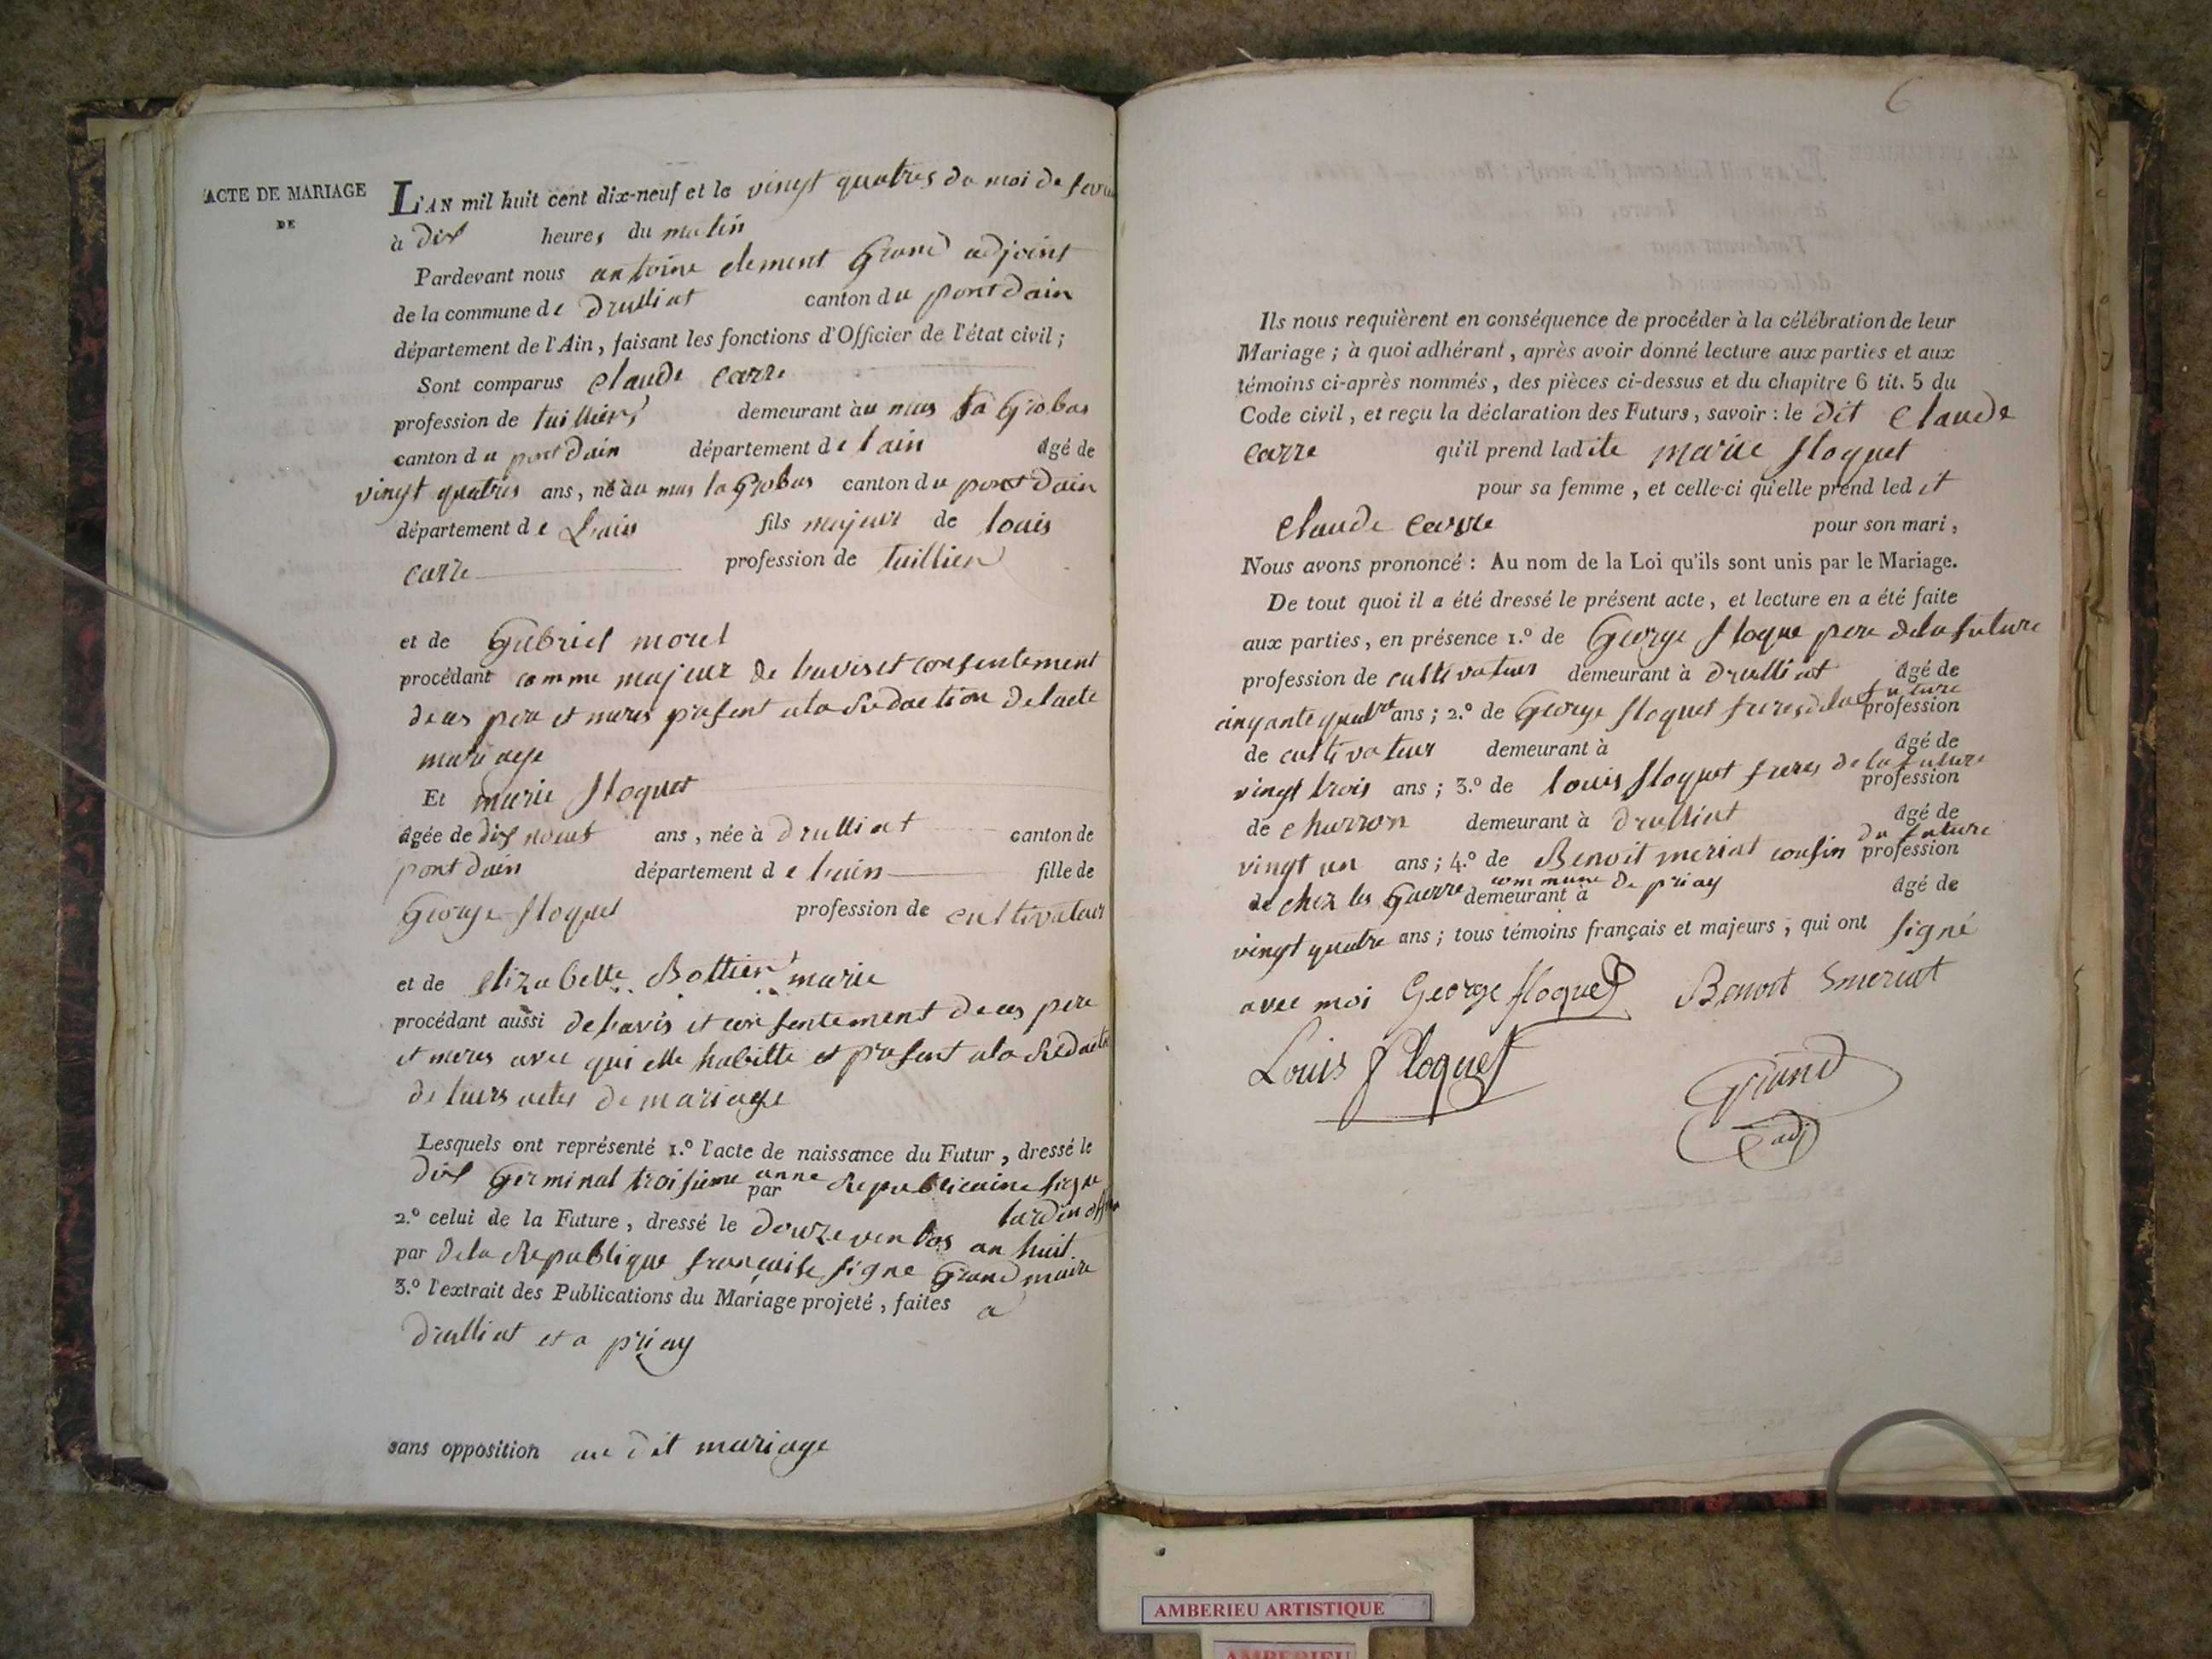 ACTE DE MARIAGE
DE
L'AN mil huit cent dix-neuf et le vingt quatres du moi de fevri
à dix heures du matin
Pardevant nous antoine clement Grand adjoint
de la commune de Drulliat canton du pont Dain
département de l'Ain, faisant les fonctions d'Officier de l'état civil;
Sont comparus Claude Carre
profession de tuillier demeurant au mas la Grobas
canton du pont Dain département de lain âgé de
vingt quatres ans, né au mas la Grobas canton du pont Dain
département de Lain fils majeur de louis
Carre profession de tuillier
et de Gabriel morel
procédant comme majeur de lavis et consentement
de ces pere et meres present ala Redaction de lacte
mariage
Et marie floquet
âgée de dix neuf ans, née à Drulliat canton de
pont Dain département de lain fille de
George floquet profession de cultivateur
et de elizabette Bottier marie
procédant aussi de lavis et consentement de ces pere
et meres avec qui elle habitte et present ala Redacti
de leurs actes de mariage
Lesquels ont représenté 1.º l'acte de naissance du Futur, dressé le
dix Germinal troisieme anne
par Republicaine signe
tardin
2.º celui de la Future, dressé le douze ventos an huit
par de la Republique françaite signe Grand maire
3.º l'extrait des Publications du Mariage projeté, faites a
Drulliat et a priay
sans opposition au dit mariage
6
Ils nous requièrent en conséquence de procéder à la célébration de leur
Mariage; à quoi adhérant, après avoir donné lecture aux parties et aux
témoins ci-après nommés, des pièces ci-dessus et du chapitre 6 tit. 5 du
Code civil, et reçu la déclaration des Futurs, savoir: le dit Claude
Carre qu'il prend ladite marie floquet
pour sa femme, et celle-ci qu'elle prend ledit
Claude Carre pour son mari,
Nous avons prononcé: Au nom de la Loi qu'ils sont unis par le Mariage.
De tout quoi il a été dressé le présent acte, et lecture en a été faite
aux parties, en présence 1.º de George floque pere dela future
profession de cultivateur demeurant à Drulliat âgé de
cinqante quatre ans; 2.º de George floquet freres dela future profession
de cultivateur demeurant à âgé de
vingt trois ans; 3.º de louis floquet freres de la future profession
de charron demeurant à Drulliat âgé de
vingt un ans; 4.º de Benoit meriat cousin du future profession
de chez les Guerre demeurant à commune de priay âgé de
vingt quatre ans; tous témoins français et majeurs, qui ont signé
avec moi George floquet Benoit Emeriat
Louis floquet
Grand
adj
AMBERIEU ARTISTIQUE
AMBERIEU